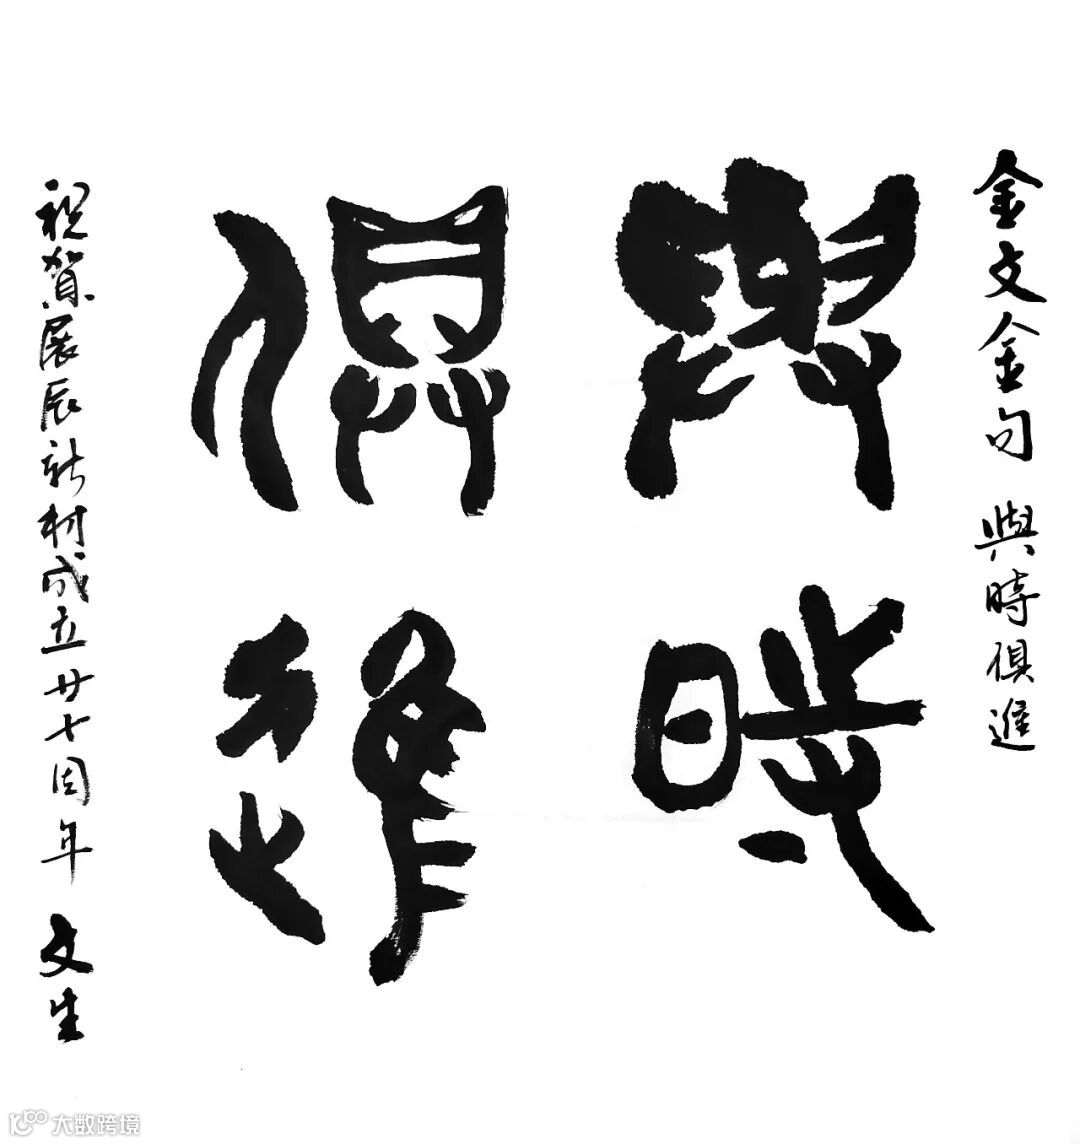 金文金句 與時俱進
與時
俱進
祝賀展辰新材成立廿七周年 文生
大数跨境